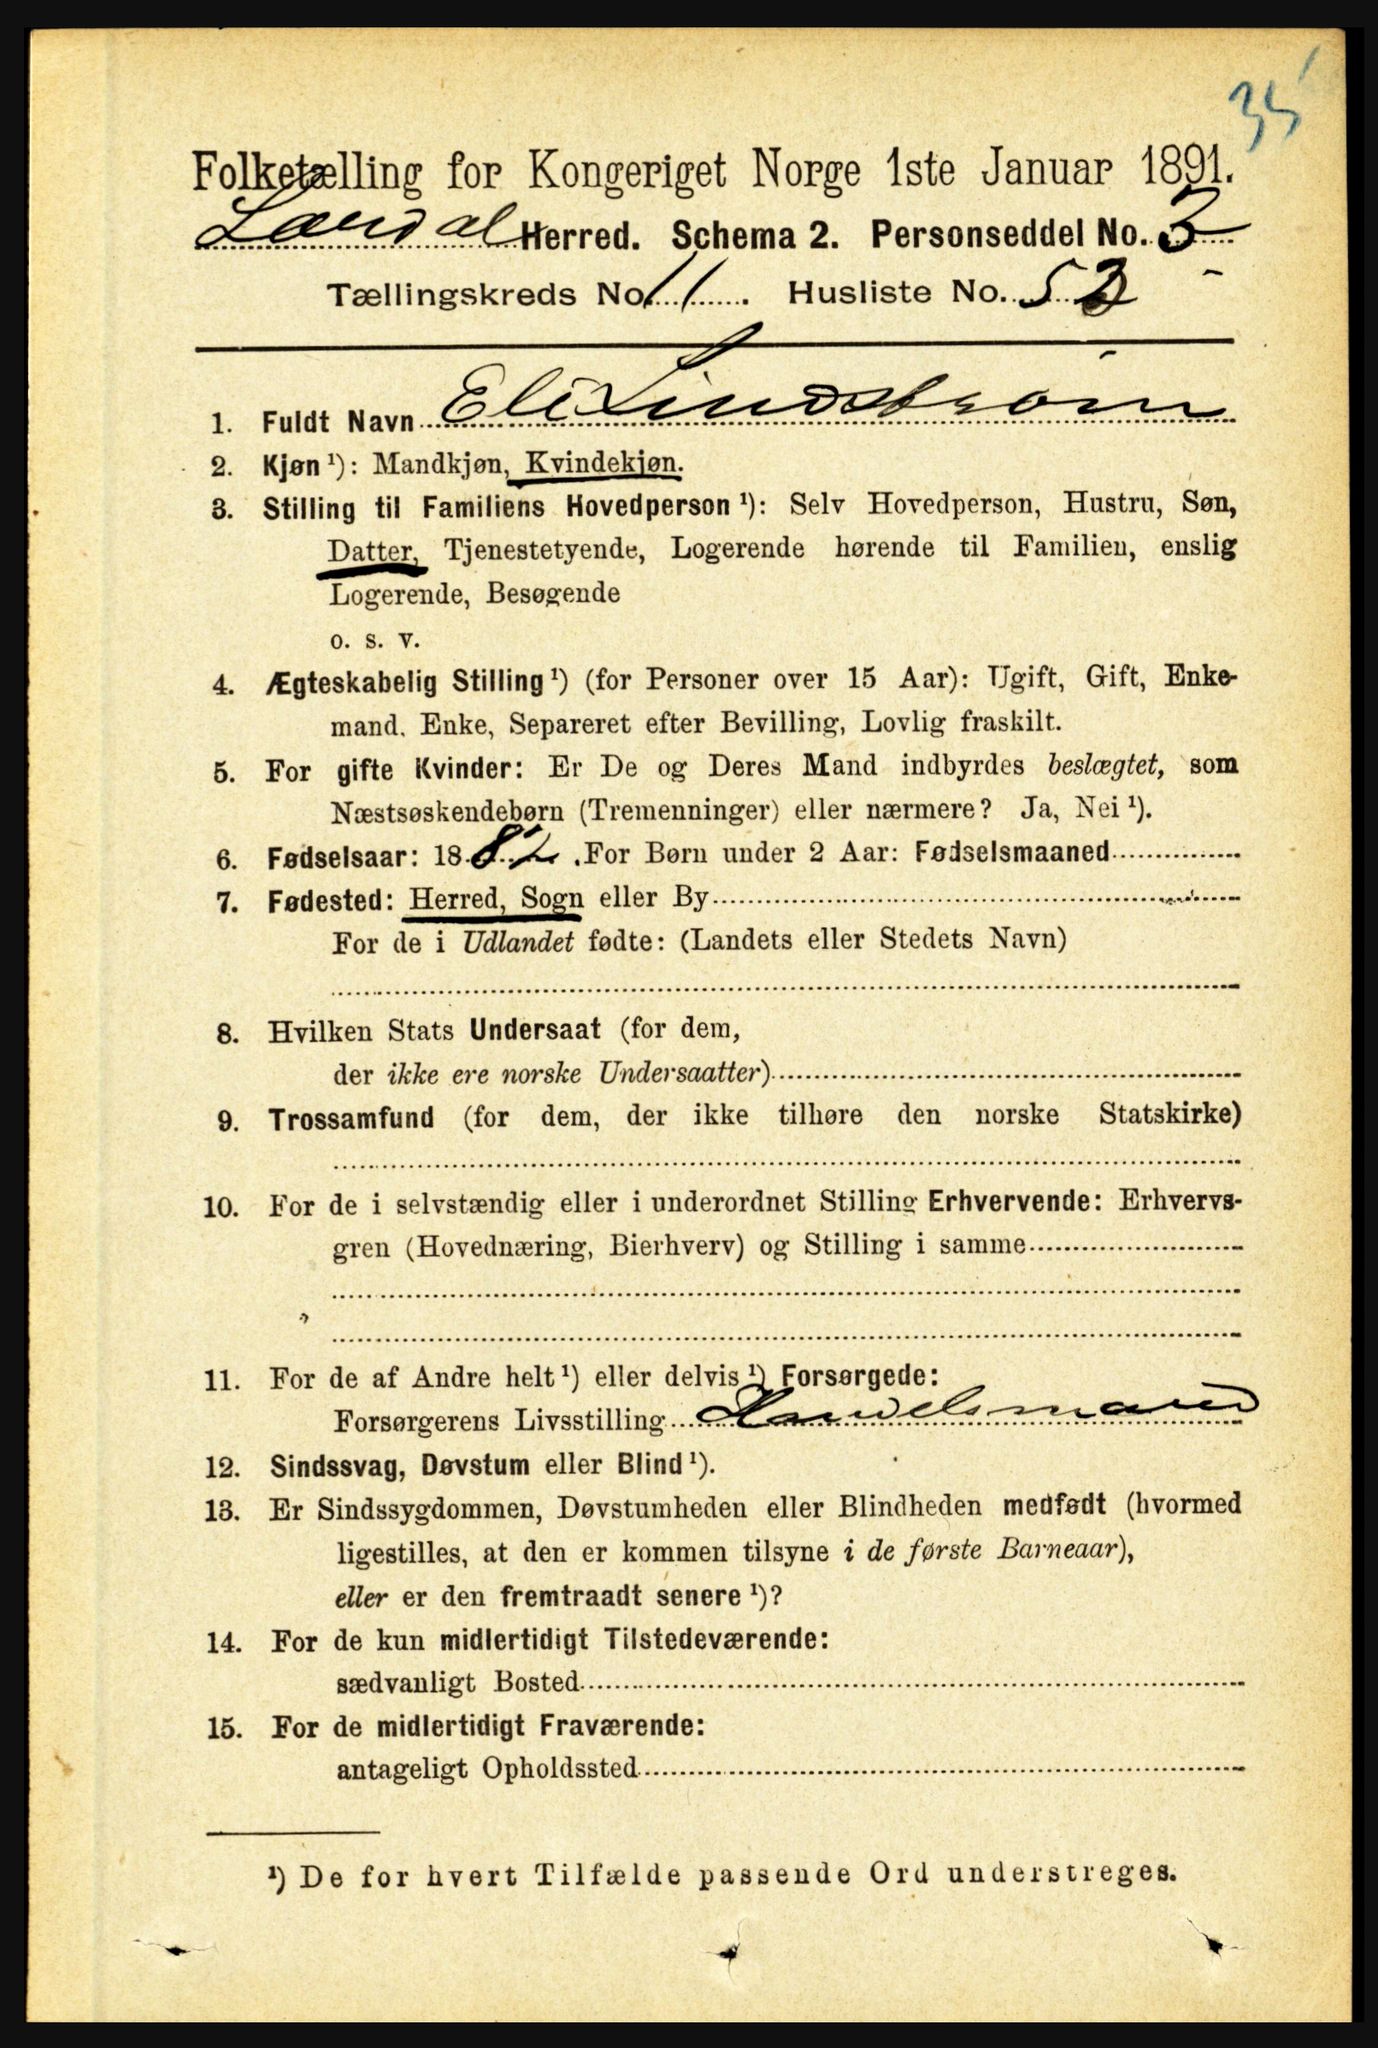 35
Folketælling for Kongeriget Norge 1ste Januar 1891.
Lærdal Herred. Schema 2. Personseddel No. 3
Tællingskreds No. 11. Husliste No. 52
1. Fuldt Navn Eli Lindstrøm
2. Kjøn ¹): Mandkjøn, Kvindekjøn.
3. Stilling til Familiens Hovedperson ¹): Selv Hovedperson, Hustru, Søn,
Datter, Tjenestetyende, Logerende hørende til Familien, enslig
Logerende, Besøgende
o. s. v.
4. Ægteskabelig Stilling ¹) (for Personer over 15 Aar): Ugift, Gift, Enke-
mand, Enke, Separeret efter Bevilling, Lovlig fraskilt.
5. For gifte Kvinder: Er De og Deres Mand indbyrdes beslægtet, som
Næstsøskendebørn (Tremenninger) eller nærmere? Ja, Nei ¹).
6. Fødselsaar: 1882. For Børn under 2 Aar: Fødselsmaaned
7. Fødested: Herred, Sogn eller By
For de i Udlandet fødte: (Landets eller Stedets Navn)
8. Hvilken Stats Undersaat (for dem,
der ikke ere norske Undersaatter)
9. Trossamfund (for dem, der ikke tilhøre den norske Statskirke)
10. For de i selvstændig eller i underordnet Stilling Erhvervende: Erhvervs-
gren (Hovednæring, Bierhverv) og Stilling i samme
11. For de af Andre helt ¹) eller delvis ¹) Forsørgede:
Forsørgerens Livsstilling Handelsmand
12. Sindssvag, Døvstum eller Blind ¹).
13. Er Sindssygdommen, Døvstumheden eller Blindheden medfødt (hvormed
ligestilles, at den er kommen tilsyne i de første Barneaar),
eller er den fremtraadt senere ¹)?
14. For de kun midlertidigt Tilstedeværende:
sædvanligt Bosted
15. For de midlertidigt Fraværende:
antageligt Opholdssted
¹) De for hvert Tilfælde passende Ord understreges.